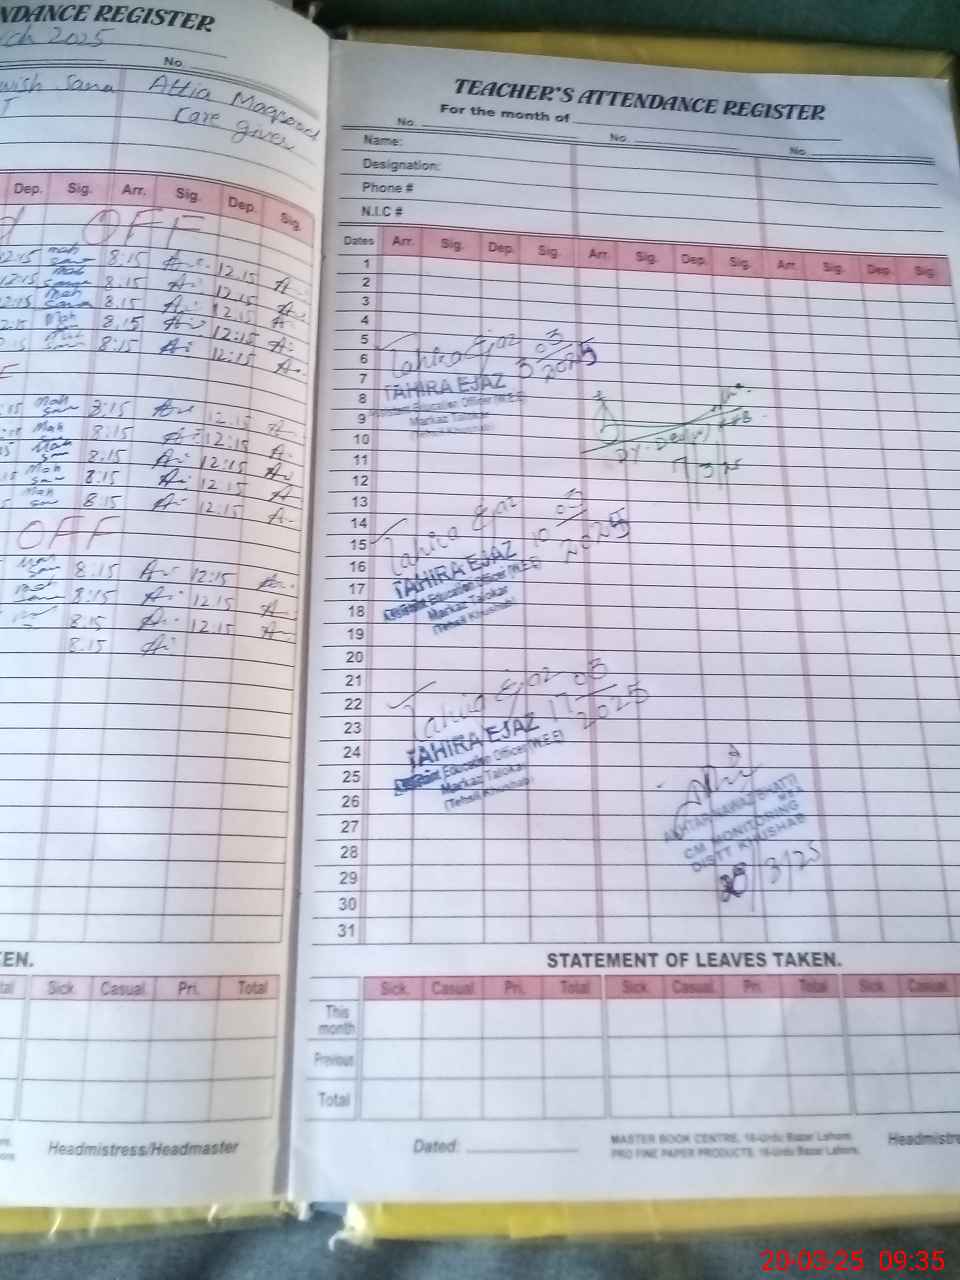 NDANCE REGISTER
ch 2025
No.
wish Sana Attia Maqsood
Care giver
Dep. Sig. Arr. Sig. Dep. Sig.
OFF
12:15 mah sana 8:15 12.15
12:15 mah sana 8.15 12.15
12:15 Mah sana 8.15 12.15
12:15 Mah sana 8:15 12:15
8:15 12:15
Mah san 8:15 12.15
Mah san 8:15 12:15
Mah san 8.15 12:15
Mah san 8:15 12:15
Mah san 8:15 12:15
OFF
Mah san 8:15 12:15
8:15 12.15
8.15 12:15
8.15
EN.
tal Sick. Casual. Pri. Total
Headmistress/Headmaster
TEACHER'S ATTENDANCE REGISTER
For the month of
No. No. No.
Name:
Designation:
Phone #
N.I.C #
Dates Arr. Sig. Dep. Sig. Arr. Sig. Dep. Sig. Arr. Sig. Dep. Sig.
1
2
3
4
5
6
7
8
9
10
11
12
13
14
15
16
17
18
19
20
21
22
23
24
25
26
27
28
29
30
31
Tahira Ejaz 3 03 2025
TAHIRA EJAZ
Assistant Education Officer (W.E.E)
Markaz Talokar
(Tehsil Khushab)
7 3 25
Tahira Ejaz 10 03 2025
TAHIRA EJAZ
Assistant Education Officer (W.E.E)
Markaz Talokar
(Tehsil Khushab)
Tahira Ejaz 17 03 2025
TAHIRA EJAZ
Assistant Education Officer (W.E.E)
Markaz Talokar
(Tehsil Khushab)
AKHTAR NAWAZ BHATTI
CM MONITORING
DISTT KHUSHAB
3/25
STATEMENT OF LEAVES TAKEN.
Sick. Casual. Pri. Total Sick. Casual. Pri. Total Sick. Casual.
This month
Previous
Total
Dated:
MASTER BOOK CENTRE, 16-Urdu Bazar Lahore.
PRO FINE PAPER PRODUCTS, 16-Urdu Bazar Lahore.
Headmistre
20-03-25 09:35